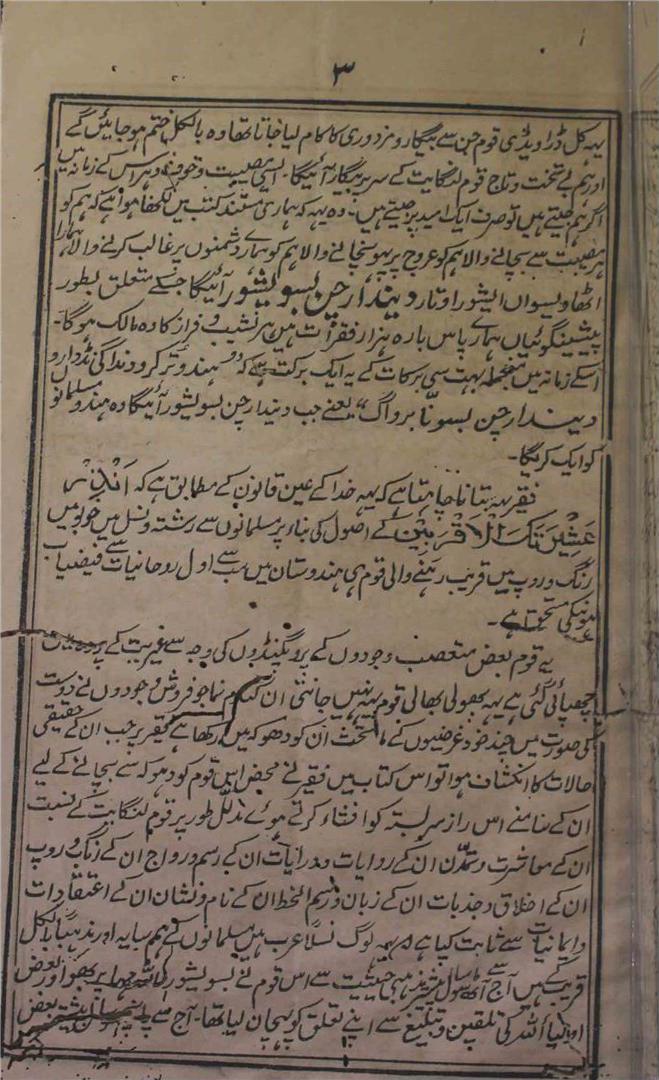 ۳
یہہ کل ڈراویڈی قوم جن سے بیگار و مزدوری کا کام لیا جاتا تھا وہ بالکل ختم ہو جائیں گے
اور ہم بے تخت و تاج قوم لنگایت کے سر پر بیگار آئیگا۔ ایسی مصیبت و خوف زدہ دہراس کے زمانہ میں
اگر ہم جیتے ہیں تو صرف ایک امید پر جیتے ہیں۔ وہ یہہ کہ ہماری مستند کتب میں لکھا ہوا ہے کہ ہم کو
مصیبت سے بچانے والا ہم کو عروج پر پہونچانے والا ہم کو ہمارے دشمنوں پر غالب کرنے والا ہمارا
اٹھاویسواں ایشور اوتار دیندار چن بسویشور آئیگا جسکے متعلق بطور
پیشینگوئیاں ہمارے پاس بارہ ہزار فقرات ہیں ہر نشیب و فراز کا وہ مالک ہوگا۔
اسکے زمانہ میں منجملہ بہت سی برکات کے یہ ایک برکت ہے کہ ہندو ترکرو
دیندار چن بسونّا برواگ“ یعنے جب دیندار چن بسویشور آئیگا وہ ہندو مسلمانوں
کو ایک کریگا۔
فقیر یہہ بتانا چاہتا ہے کہ یہہ خدا کے عین قانون کے مطابق ہے کہ اَنْذِرْ
عَشِیْرَتَکَ الْاَقْرَبِیْنَ کے اصول کی بناء پر مسلمانوں سے رشتہ و نسل میں خو بو میں
رنگ و روپ میں قریب رہنے والی قوم ہی ہندوستان میں سب سے اول روحانیات سے فیضیاب
ہونیکی مستحق ہے۔
یہ قوم بعض متعصب وجودوں کے پروپگنڈوں کی وجہ سے غیریت کے پردہ میں
چھپائی گئی ہے یہہ بھولی بھالی قوم یہہ نہیں جانتی ان گندم نما جو فروش وجودوں نے دوست
کی صورت میں چند خود غرضیوں کے ماتحت ان کو دھوکہ میں رکھا ہے فقیر پر جب ان کے حقیقی
حالات کا انکشاف ہوا تو اس کتاب میں فقیر نے محض اس قوم کو دہوکہ سے بچانے کے لیے
ان کے سامنے اس راز سربستہ کو افشاء کرتے ہوئے مدلل طور پر قوم لنگایت کے نسبت
ان کے معاشرت و تمدّن ان کے روایات و درایات ان کے رسم و رواج ان کے رنگ و روپ
ان کے اخلاق و جذبات ان کے زبان و رسم الخط ان کے نام و نشان ان کے اعتقادات
و ایمانیات سے ثابت کیا ہے کہ یہہ لوگ نسلاً عرب ہیں مسلمانوں کے ہم سایہ اور مذہباً بالکل
قریب ہیں آج سے آٹھ سو سال پیشتر مذہبی حیثیت سے اس قوم نے بسویشور اور بعض
اولیا اللہ کی تلقین و تبلیغ سے اپنے تعلق کو پہچان لیا تھا۔ آج سے پیشتر بعض